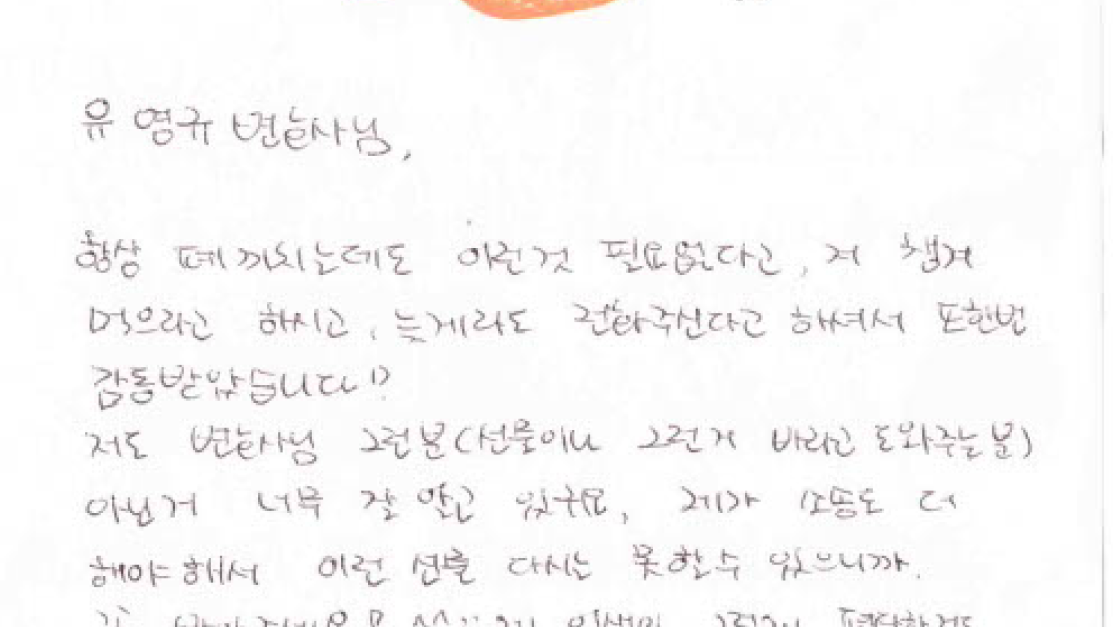 유 영규 변호사님,
항상 폐끼치는데도 이런것 필요없다고, 저 챙겨
먹으라고 하시고, 늦게라도 전화주신다고 하셔서 또한번
감동받았습니다!?
저도 변호사님 그런분(선물이나 그런거 바라고 도와주는 분)
아닌거 너무 잘 알고 있구요, 제가 소송도 더
해야해서 이런 선물 다시는 못할수 있으니까.